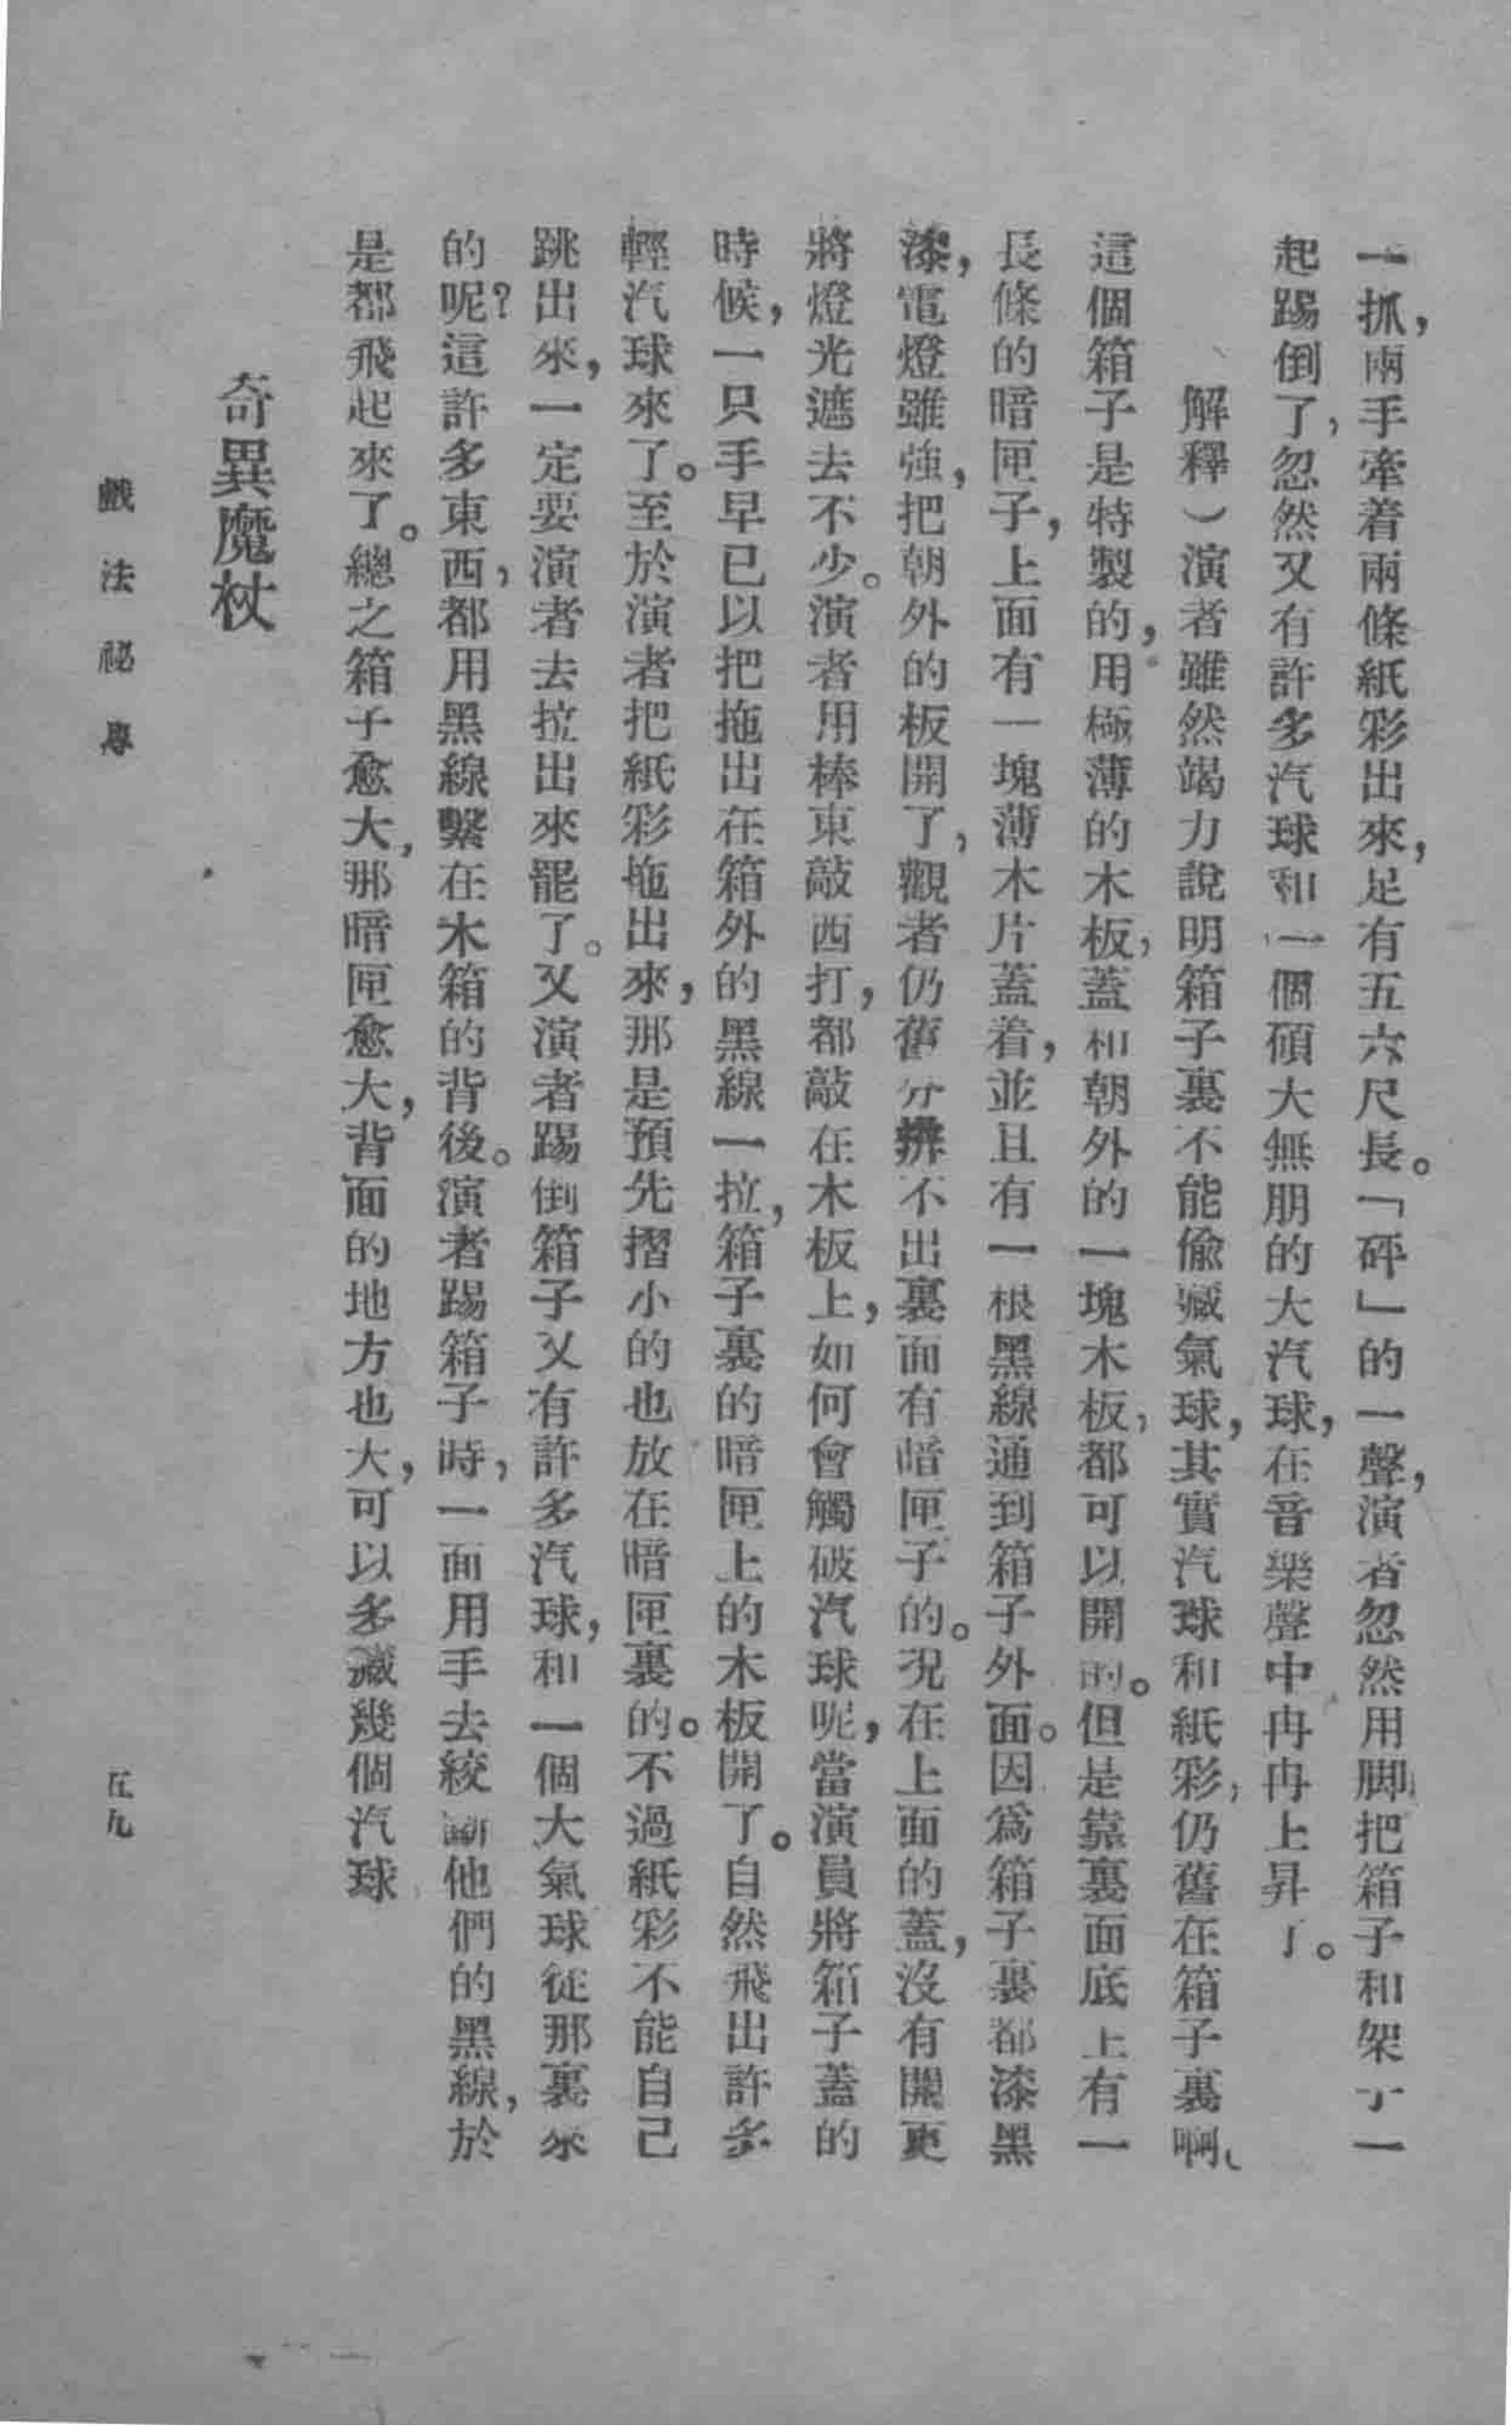 一抓，兩手牽着兩條紙彩出來，足有五六尺長。「砰」的一聲，演者忽然用脚把箱子和架子一
起踢倒了，忽然又有許多汽球和一個碩大無朋的大汽球，在音樂聲中冉冉上昇了。
解釋）演者雖然竭力說明箱子裏不能偸藏氣球，其實汽球和紙彩，仍舊在箱子裏啊、
這個箱子是特製的，用極薄的木板，蓋和朝外的一塊木板，都可以開的。但是靠裏面底上有一
長條的暗匣子，上面有一塊薄木片蓋着，並且有一根黑線通到箱子外面。因爲箱子裏都漆黑
漆，電燈雖強，把朝外的板開了，觀者仍舊分辨不出裏面有暗匣子的。況在上面的蓋，沒有開更
將燈光遮去不少。演者用棒東敲西打，都敲在木板上，如何會觸破汽球呢，當演員將箱子蓋的
時候，一只手早已以把拖出在箱外的黑線一拉，箱子裏的暗匣上的木板開了。自然飛出許多
輕汽球來了。至於演者把紙彩拖出來，那是預先摺小的也放在暗匣裏的。不過紙彩不能自己
跳出來，一定要演者去拉出來罷了。又演者踢倒箱子又有許多汽球，和一個大氣球從那裏來
的呢？這許多東西，都用黑線繫在木箱的背後。演者踢箱子時，一面用手去絞斷他們的黑線，於
是都飛起來了。總之箱子愈大，那暗匣愈大，背面的地方也大，可以多藏幾個汽球
奇異魔杖
戲法祕專
五九